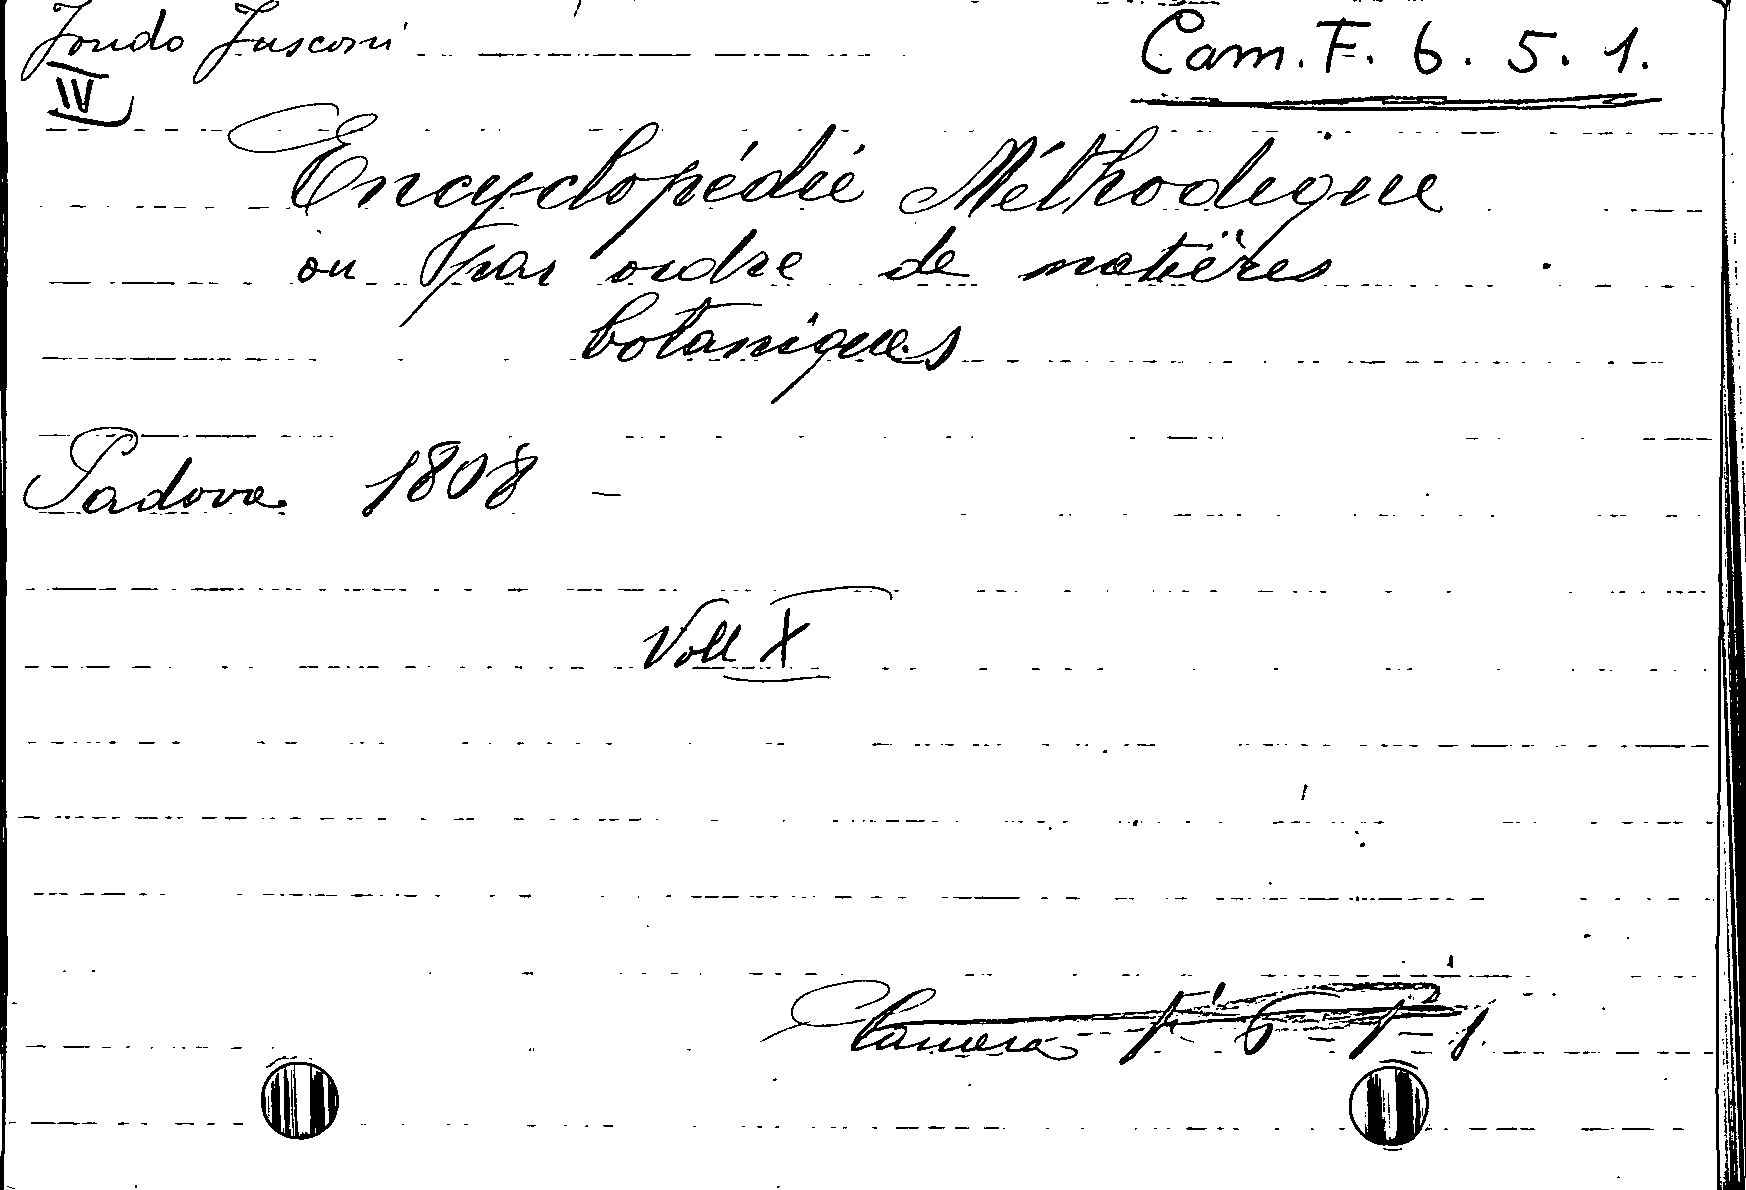 Fondo Fusconi Cam. F. 6. 5. 1.
IV
Encyclopédié Méthodique
ou par ordre de matières
botaniques
Padova 1808
Voll X
Camera F 6 5 1